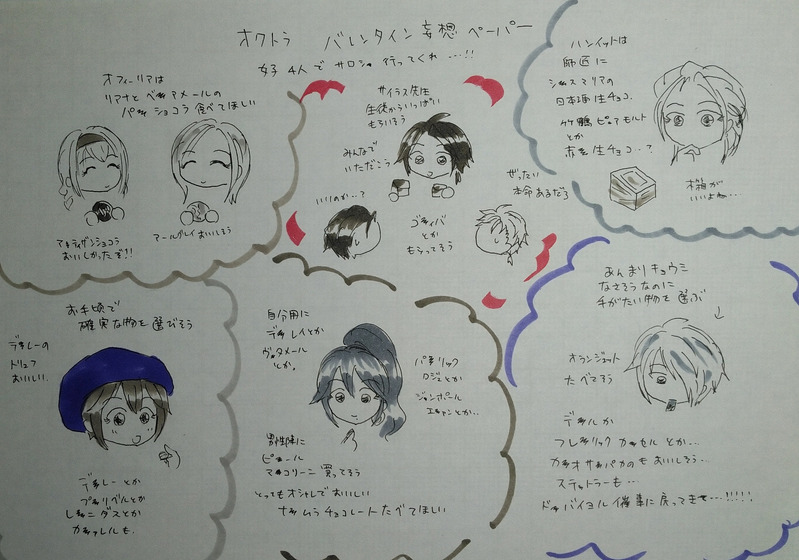 オクトラ バレンタイン妄想ペーパー
女子4人でサロショ行ってくれ…!!
オフィーリアは
リアナとベルアメールの
パレショコラ食べてほしい
アルティザンショコラ
おいしかったぞ!!
アールグレイおいしそう
サイラス先生
生徒からいっぱい
もらいそう
みんなで
いただこう
いいのか…?
ゴディバ
とか
もらってそう
ぜったい
本命あるだろ
ハンイットは
師匠に
シルスマリアの
日本酒生チョコ
竹鶴ピュアモルト
とか
赤 生チョコ…?
木箱が
いいよね…
お手頃で
確実な物を選びそう
デメルーの
トリュフ
おいしい
とか
とか
レオニダスとか
カファレルも
自分用に
デメレイとか
ヴィタメール
とか
パトリック
ロジェとか
ジャンポール
エヴァンとか…
男性陣に
ピエール
マルコリーニ買ってそう
とってもオシャレでおいしい
ナカムラチョコレートたべてほしい
あんまりキョウミ
なさそうなのに
手がたい物を選ぶ
オランジェット
たべてそう
デメルか
フレデリックカッセルとか…
カカオサンパカのもおいしそう…
ステットラーも…
ドゥバイヨル催事に戻ってきて…!!!!!